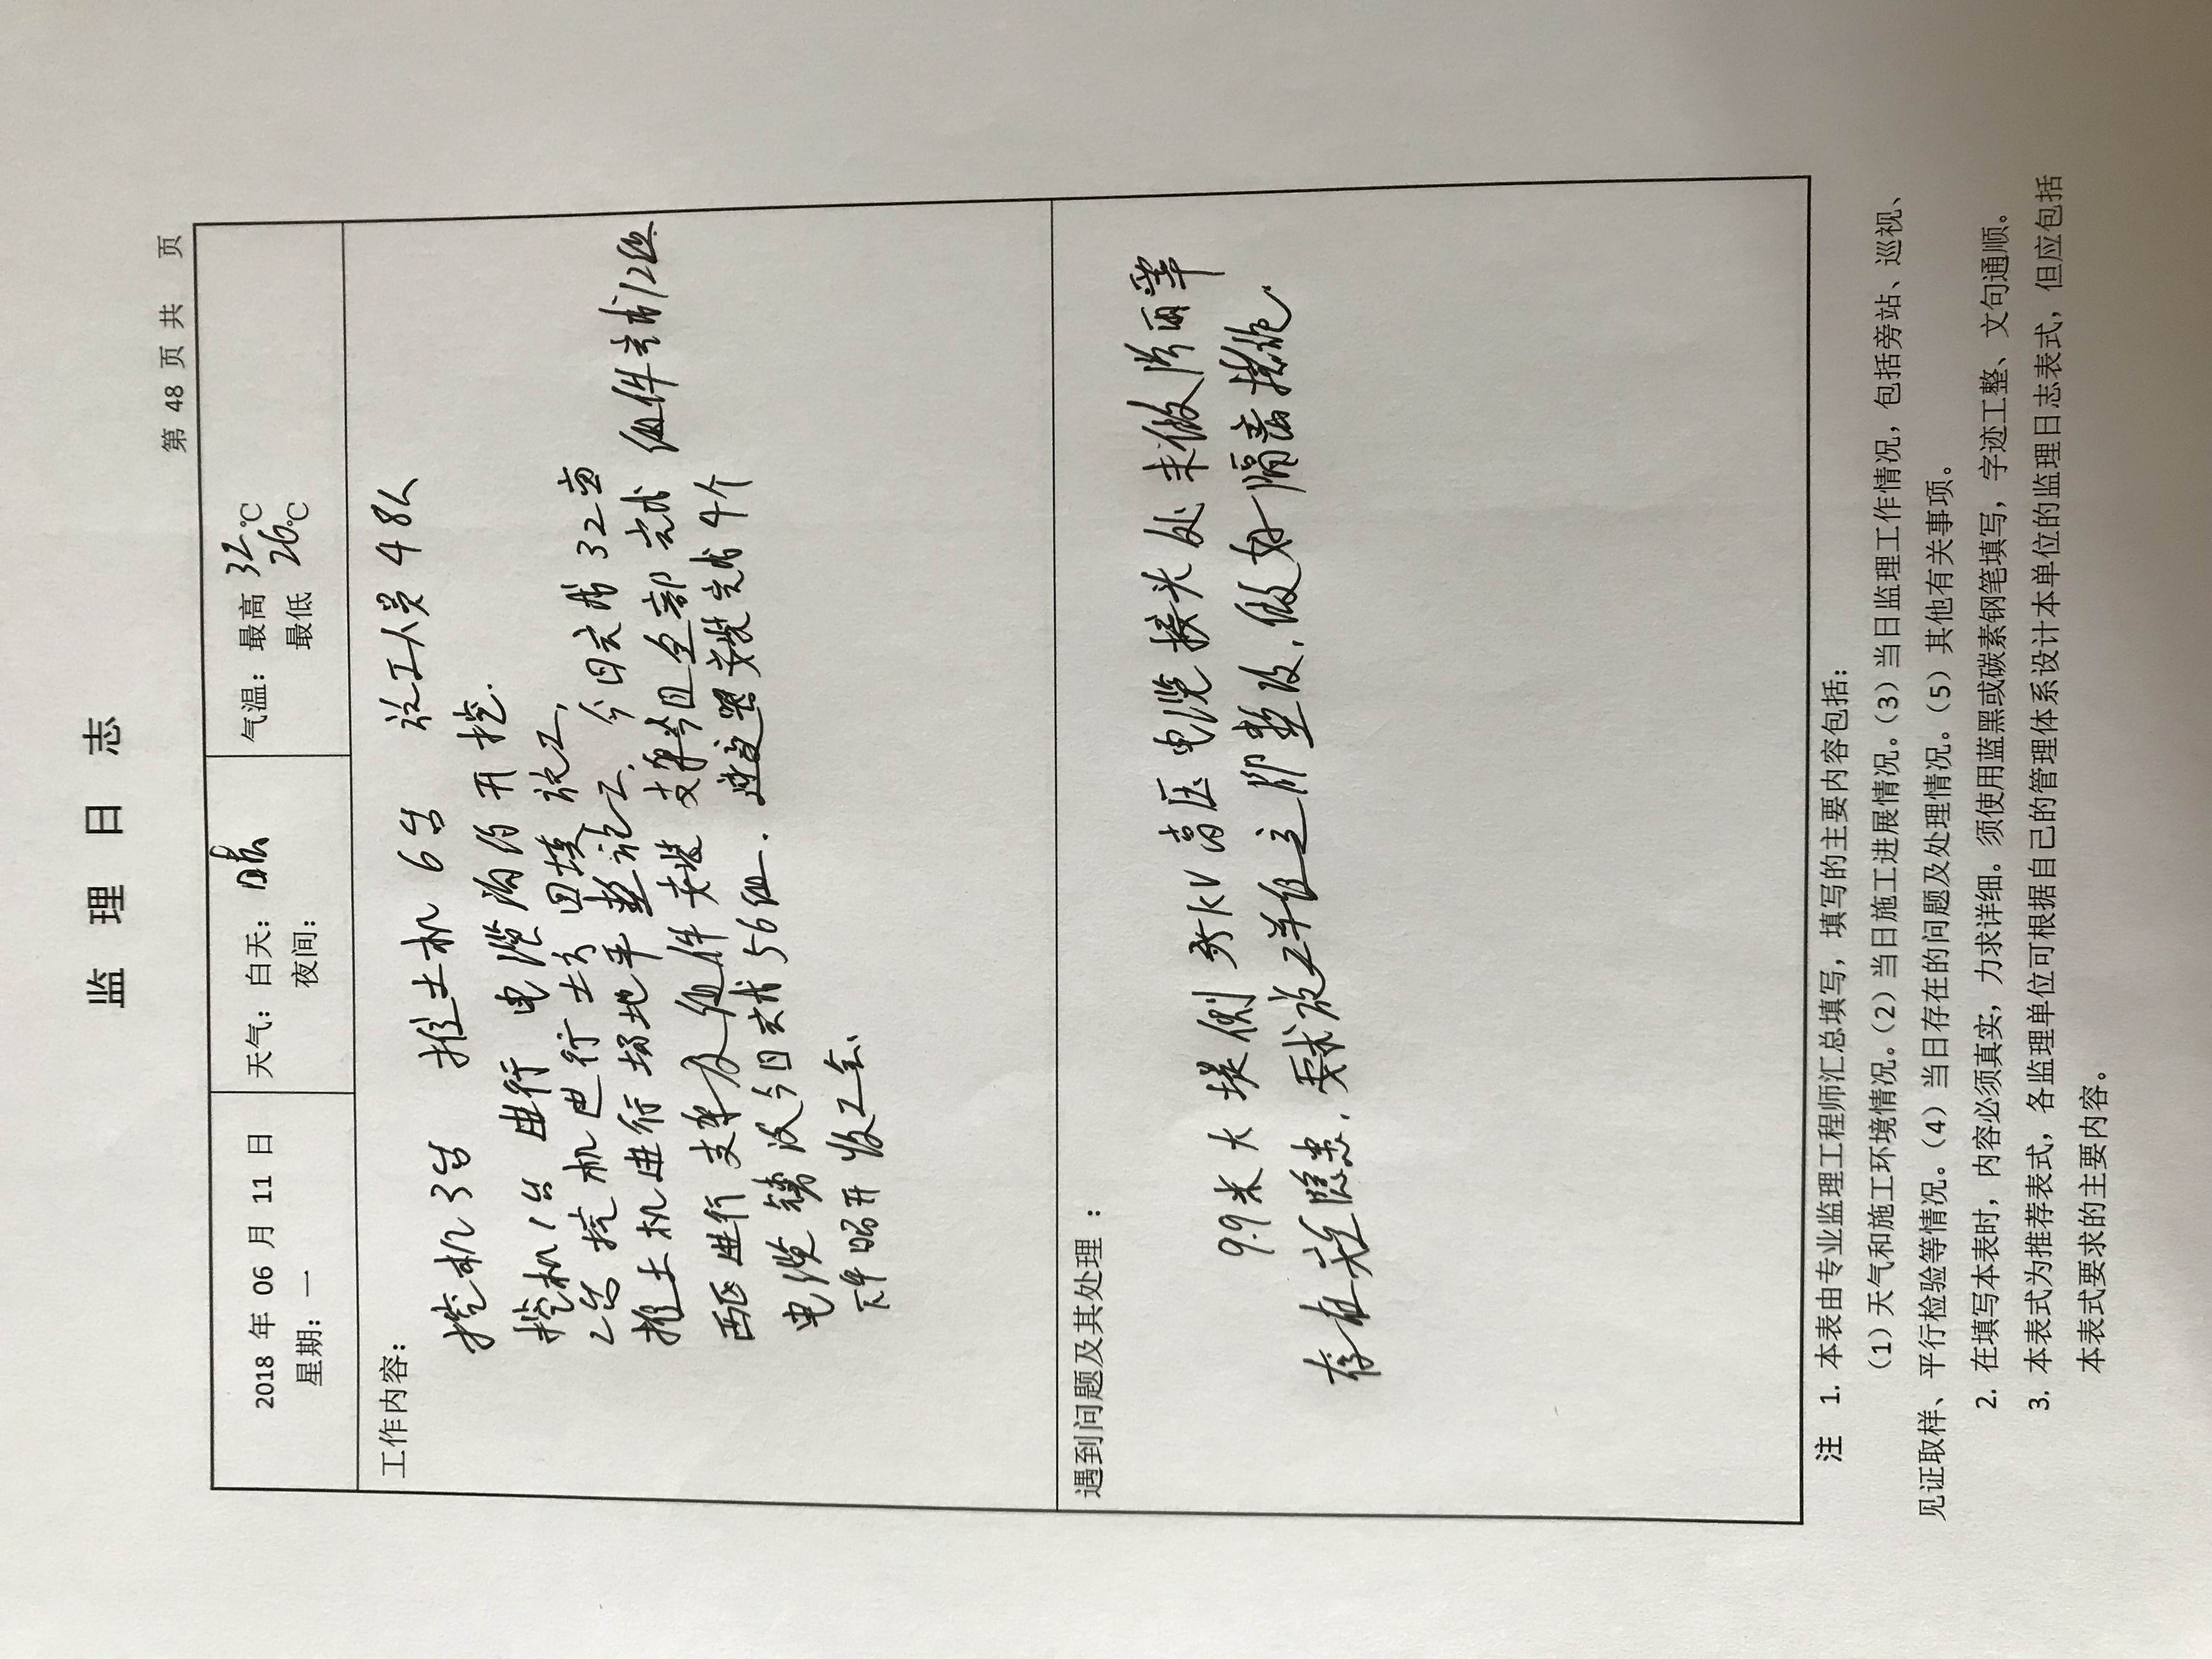 监 理 日 志
第 48 页 共 页
2018 年 06 月 11 日 天气：白天：晴 气温：最高 32℃
星期：一 夜间： 最低 26℃
工作内容：
挖机3台 推土机 6台 施工人员 48人
挖机1台 进行 电缆沟的开挖.
2台 挖机进行土方回填施工,
推土机进行场地平整施工, 今日完成 32亩
西区进行支架及组件安装 支架今日全部完成 组件完成12组.
电缆铺设今日完成56组. 逆变器安装完成4个
下午召开 监理会.
遇到问题及其处理 ：
9.9米大堤侧35kV高压电缆接头处未做防雨罩
存在安全隐患, 要求施工单位立即整改, 做好隔离措施.
注 1. 本表由专业监理工程师汇总填写，填写的主要内容包括：
（1）天气和施工环境情况。（2）当日施工进展情况。（3）当日监理工作情况，包括旁站、巡视、
见证取样、平行检验等情况。（4）当日存在的问题及处理情况。（5）其他有关事项。
2. 在填写本表时，内容必须真实，力求详细。须使用蓝黑或碳素钢笔填写，字迹工整、文句通顺。
3. 本表式为推荐表式，各监理单位可根据自己的管理体系设计本单位的监理日志表式，但应包括
本表式要求的主要内容。